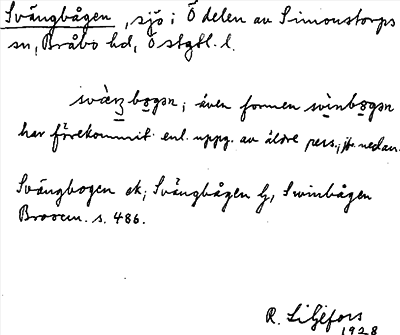 Svängbågen, sjö i Ö delen av Simonstorps
sn, Bråbo hd, Östgtl. l.
svàŋbo̲gən; även formen svìnbo̲gən
har förekommit enl. uppg. av äldre pers., jfr nedan.
Svängbogen ek; Svängbågen Gj, Swinbågen
Broocm. s. 486.
R. Liljefors
1928